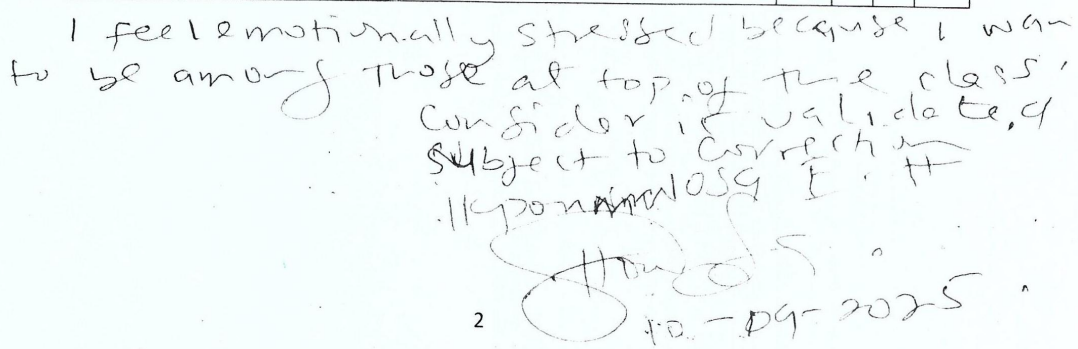 I feel emotionally stressed because I wan
to be among those at top of the class.
Consider it validated
subject to correction
E. H
10-09-2025
2